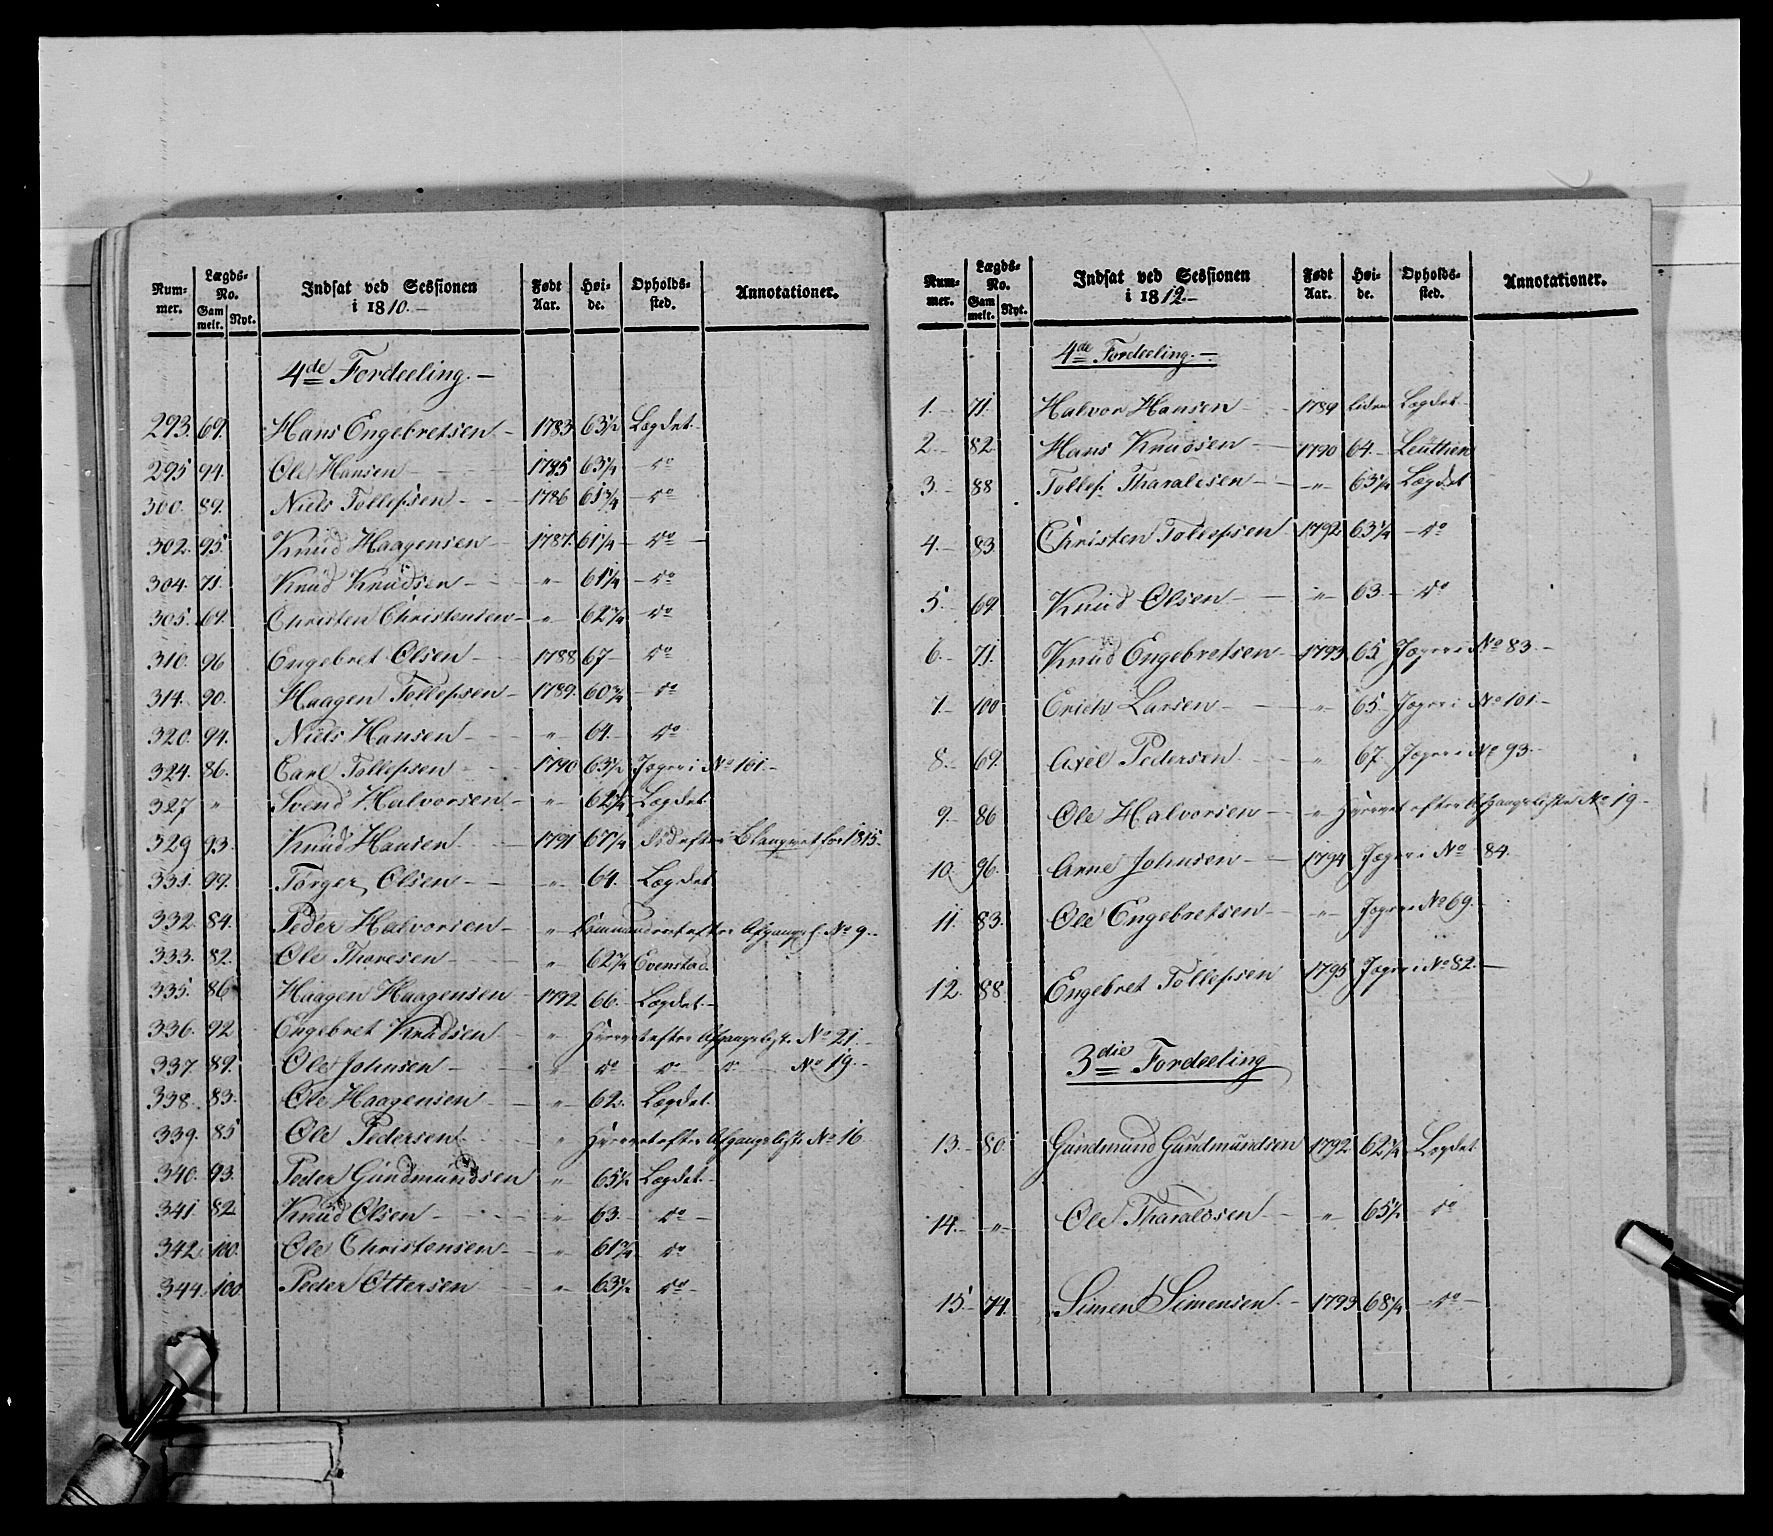 Num-mer. Lægds-No. Gam melt. Nyt. Indsat ved Sessionen i 1810.— Født Aar. Høi-de. Opholds-sted. Annotationer.
4de Fordeeling.—
293. 69. Hans Engebretsen — 1783 63½ Lægdet.
295 94. Ole Hansen — 1785 63¼ — do
300. 89. Niels Tollefsen — 1786 61¾ — do
302. 95. Knud Haagensen — 1787. 61¼ — do —
304. 71. Knud Knudsen — " — 61¼ — do
305. 69. Christen Christensen — " — 62¼ — do
310. 96 Engebret Olsen — 1788 67 — do
314. 90. Haagen Tollefsen — 1789. 60¾ — do
320. 94. Niels Hansen — " 64. — do
324. 86. Carl Tollefsen — 1790 63½ Jæger i No 101.—
327 " Svend Halvorsen — " — 62¼ Lægdet.
329 93. Knud Hansen — 1791 67¼ for 1815.
331. 99. Torger Olsen — " — 64. Lægdet
332. 84. Peder Halvorsen — " Commanderet efter Afgangsl. No 9.—
333. 82. Ole Thoresen — " 62¼ Evenstad.
335. 86 Haagen Haagensen — 1792 66. Lægdet.—
336. 92 Engebret Knudsen — " Hvervet efter Afgangsliste No 21.—
337. 89. Ole Johnsen — " do do do No 19.—
338. 83. Ole Haagensen — " — 62. Lægdet.
339. 85 Ole Pedersen — " Hvervet efter Afgangsliste No 16
340. 93. Peder Gundmundsen " 65½ Lægdet.—
341. 82 Knud Olsen — " 63.— do —
342. 100. Ole Christensen — " — 61¾ do
344. 100 Peder Ottersen — " — 63½ do —
Num-mer. Lægds-No. Gam melt. Nyt. Indsat ved Sessionen i 1812.— Født Aar. Høi-de. Opholds-sted. Annotationer.
4de Fordeeling.—
1.— 71. Halvor Hansen — 1789 Lægdet
2.— 82. Hans Knudsen — 1790 64.—
3.— 88 Tollef Tharaldsen — " — 63¼ Lægdet
4.— 83 Christen Tollefsen 1792 63¼ — do
5.— 69 Knud Olsen — " — 63.— do
6.— 71. Knud Engebretsen — 1793 65 Jæger i No 83.—
7.— 100 Erich Larsen — " 65 Jæger i No 101.—
8.— 69. Axel Pedersen — " 67 Jæger i No 93.—
9.— 86 Ole Halvorsen — " Hvervet efter Afgangsliste No 19.—
10. 96. Arne Johnsen — 1794 Jæger i No 84.
11. 83. Ole Engebretsen — " — Jæger i No 69.
12. 88. Engebret Tollefsen 1795 Jæger i No 82.—
3die Fordeeling
13.— 80. Gundmund Gundmundsen 1792 62¼ Lægdet
14. " Ole Tharaldsen — " 65½ do
15.— 74. Simen Simensen.— 1793 68¼ — do —